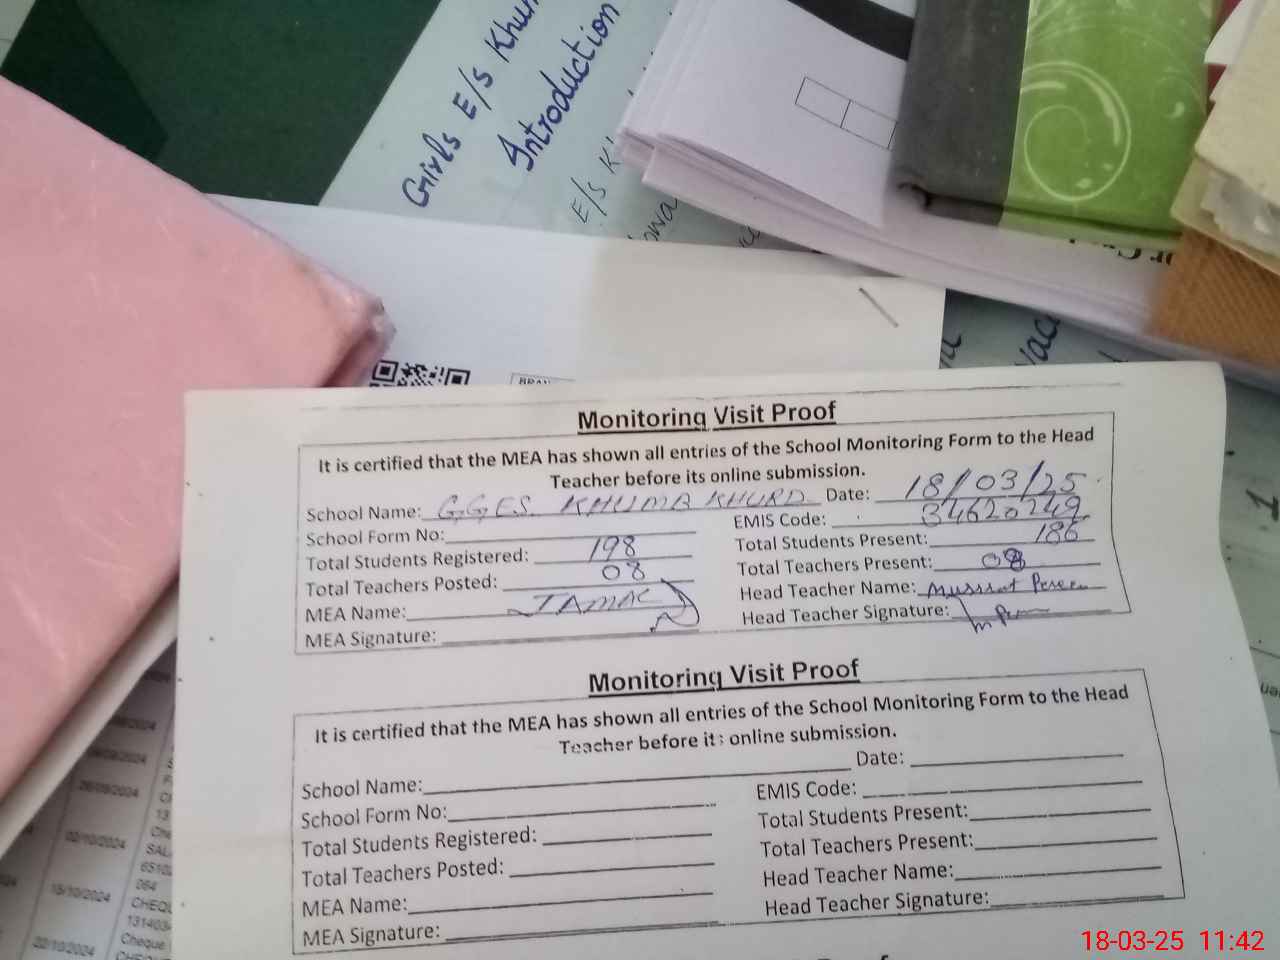 Girls E/S Khur
Introduction
E/S K
Monitoring Visit Proof
It is certified that the MEA has shown all entries of the School Monitoring Form to the Head
Teacher before its online submission.
School Name: G.G.E.S. KHUMB KHURD Date: 18/03/25
School Form No: EMIS Code: 34620249
Total Students Registered: 198 Total Students Present: 186
Total Teachers Posted: 08 Total Teachers Present: 08
MEA Name: JAMAL Head Teacher Name: Mussrat Perveen
MEA Signature: Head Teacher Signature:
Monitoring Visit Proof
It is certified that the MEA has shown all entries of the School Monitoring Form to the Head
Teacher before its online submission.
School Name: Date:
School Form No: EMIS Code:
Total Students Registered: Total Students Present:
Total Teachers Posted: Total Teachers Present:
MEA Name: Head Teacher Name:
MEA Signature: Head Teacher Signature:
26/09/2024
02/10/2024
15/10/2024
22/10/2024
CHEQU
131403
Cheque
18-03-25 11:42